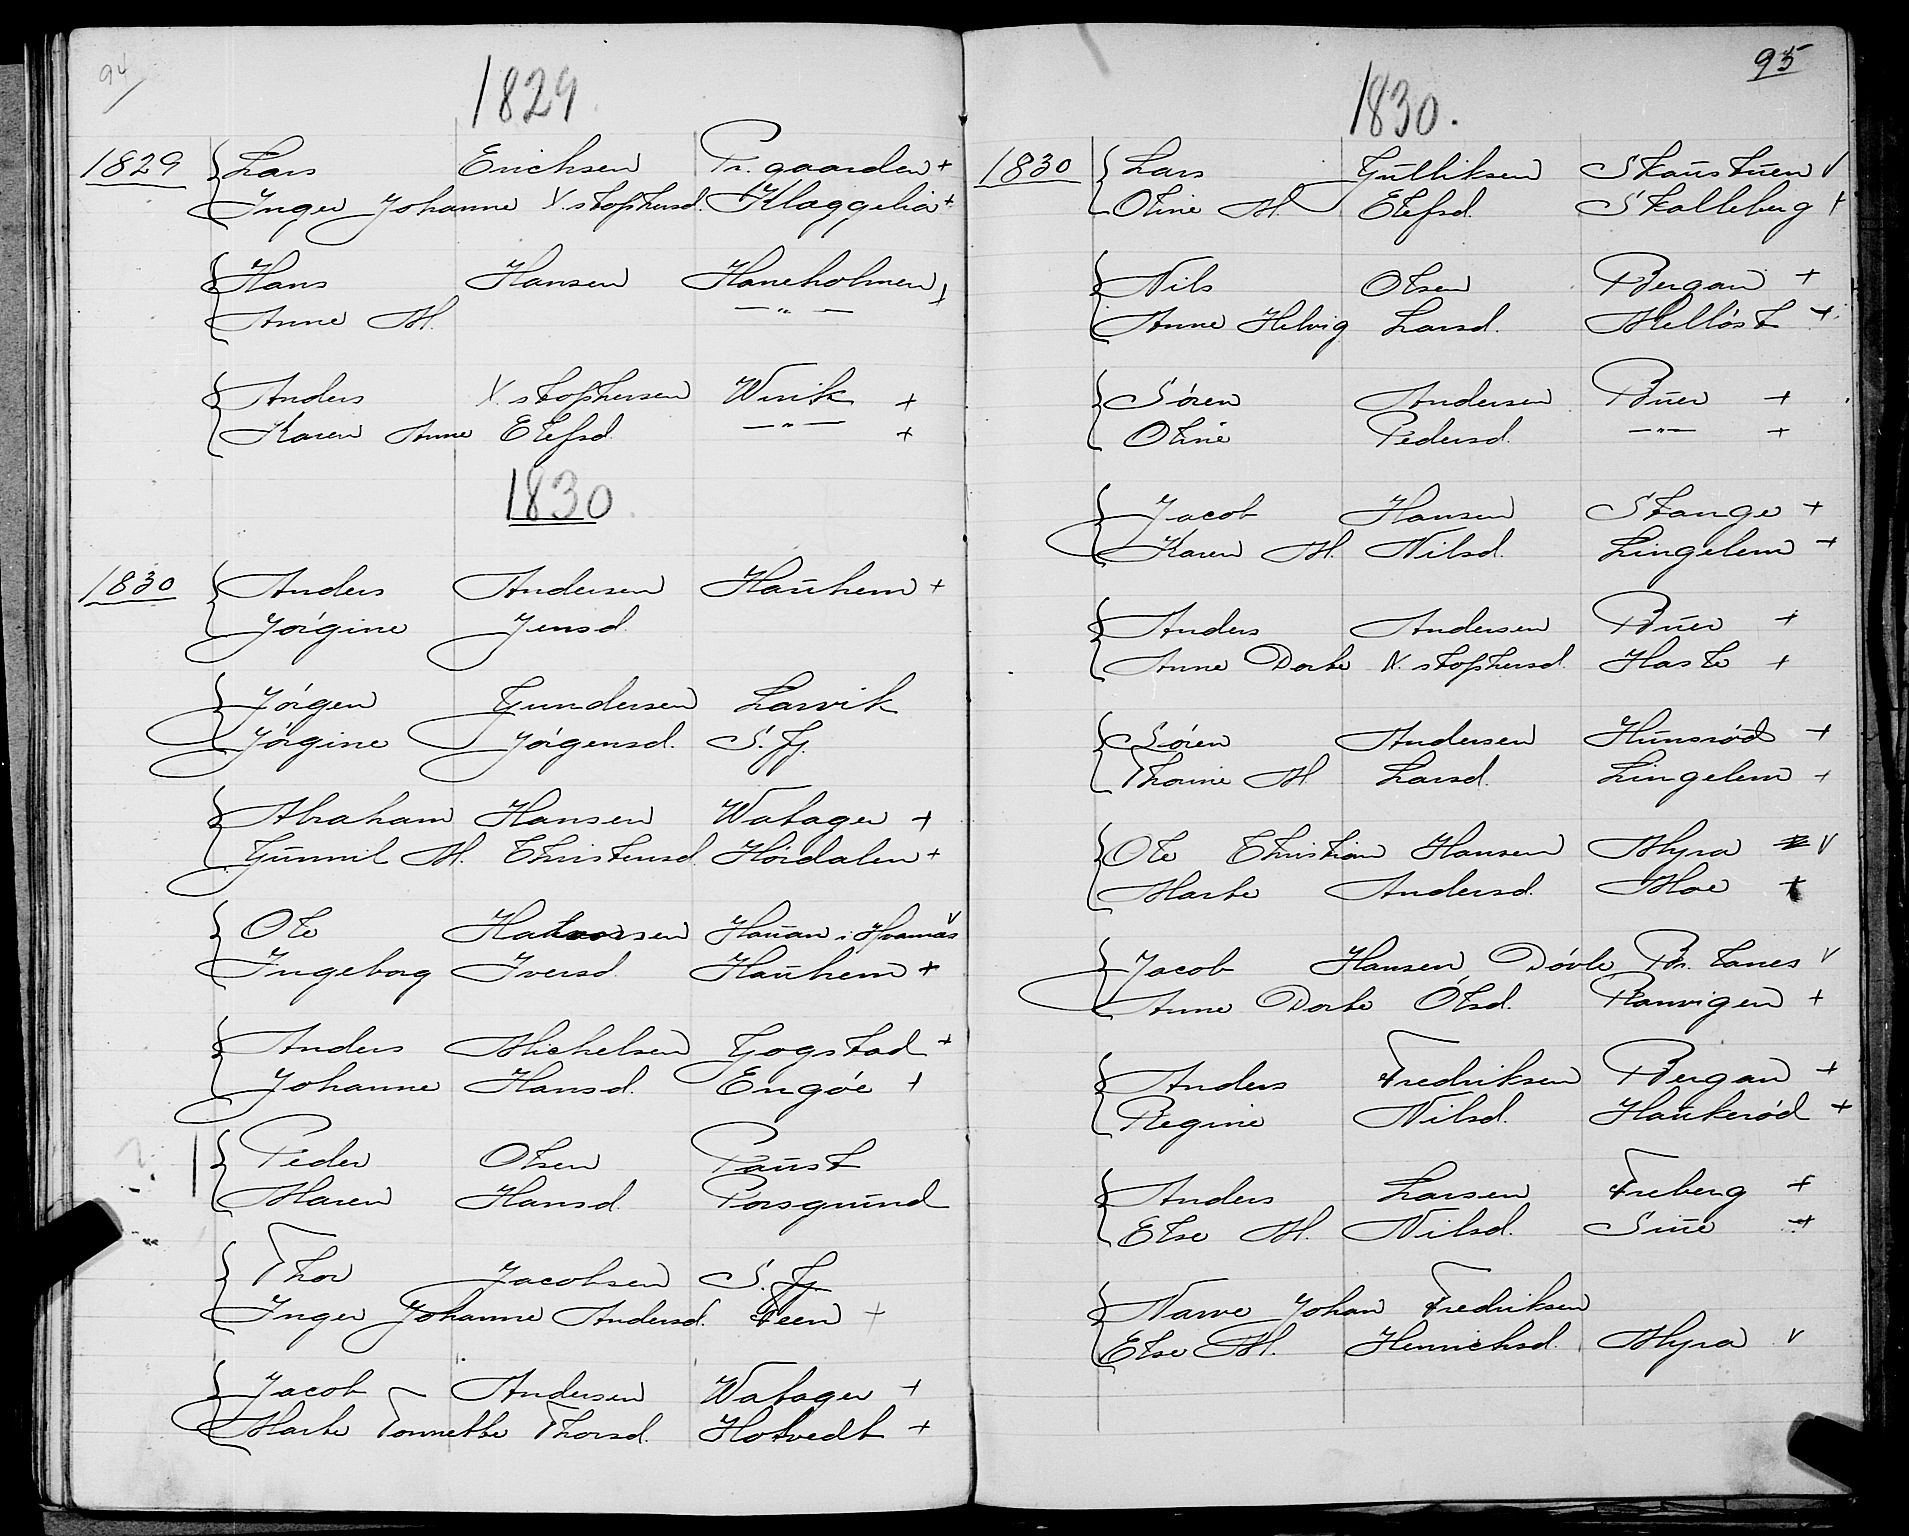 94
1829
1829 Lars Erichsen Pr. gaarden +
Inger Johanne X.stophersd. Klaggelia +
Hans Hansen Haneholmen +
Anne M. — " —
Anders X.stophersen Wirik +
Karen Anne Olefsd. — " — +
1830.
1830 Anders Andersen Hauhem +
Jörgine Jensd.
Jörgen Gundersen Larvik
Jörgine Jörgensd. S. fj.
Abraham Hansen Watager +
Gunnil M. Christensd. Hördalen +
Ole Halvorsen Hauan i Hvarnæs v
Ingeborg Iversd. Hauhem +
Anders Michelsen Gogstad +
Johanne Hansd. Engöe +
Peder Olsen Paust
Maren Hansd. Porsgrund
Thor Jacobsen S. fj
Inger Johanne Andersd. Feen +
Jacob Andersen Watager +
Marte Tonnette Thorsd. Hotvedt +
95
1830.
1830 Lars Gulliksen Skaustuen v
Oline M. Olefsd. Skalleberg +
Nils Olsen Bergan +
Anne Helvig Larsd. Melløst +
Sören Andersen Buer +
Oline Pedersd. — " — +
Jacob Hansen Stange +
Karen M. Nilsd. Lingelem +
Anders Andersen Buer +
Anne Dorte X.stophersd. Hasle +
Sören Andersen Hunsröd +
Thorine M. Larsd. Lingelem +
Ole Christian Hansen Myra v
Marte Andersd. Moe +
Jacob Hansen Dövle Br. lanes v
Anne Dorte Olsd. Ranvigen +
Anders Fredriksen Bergan +
Regine Nilsd. Haukeröd +
Anders Larsen Freberg +
Else M. Nilsd. Sue +
Narve Johan Fredriksen
Else M. Henrichsd. Myra v